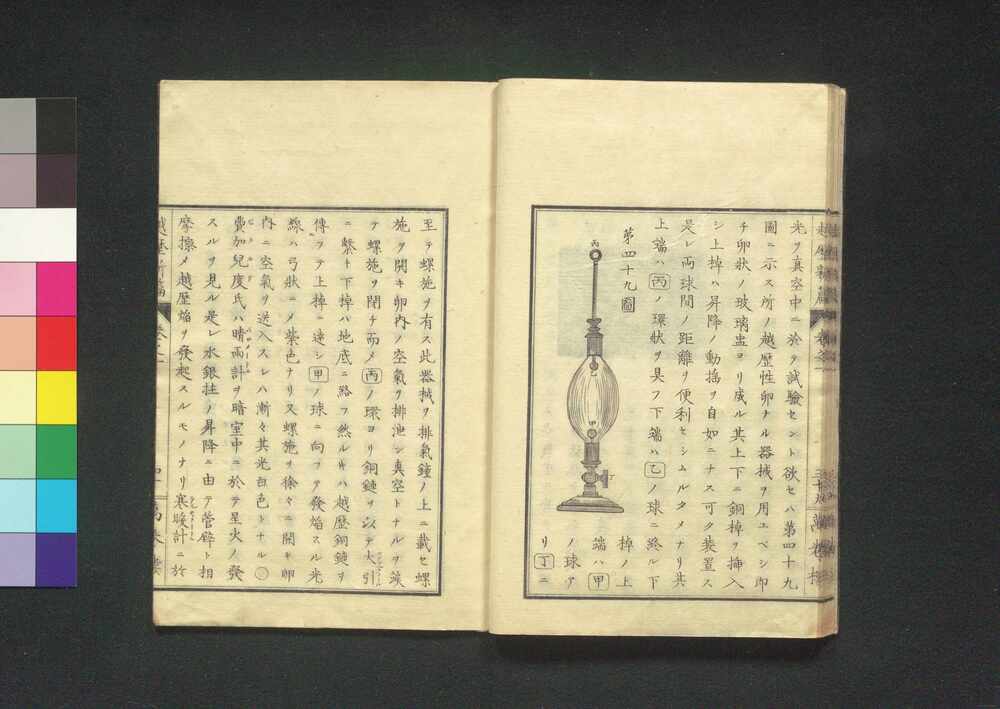 光ヲ真空中ニ於テ試驗セント欲セハ第四十九
圖ニ示ス所ノ越歴性卵ナル器械ヲ用ユベシ即
チ卵狀ノ玻璃盅ヨリ成ル其上下ニ銅棹ヲ挿入
シ上棹ハ昇降ノ動搖ヲ自如ニナス可ク装置ス
是レ両球間ノ距離ヲ便利セシムルタメナリ其
上端ハ丙ノ環狀ヲ具フ下端ハ乙ノ球ニ終ル下
棹ノ上
端ハ甲
ノ球ア
リ丁ニ
第四十九圖
丙
至テ螺施ヲ有ス此器械ヲ排氣鐘ノ上ニ載セ螺
施ヲ開キ卵内ノ空氣ヲ排泄シ真空トナルヲ竢
テ螺施ヲ閉チ而メ丙ノ環ヨリ銅鏈ヲ以テ大引
ニ繋ト下棹ハ地底ニ路フ然ルキハ越歴銅鏈ヲ
傳フテ上棹ニ達シ甲ノ球ニ向フテ發焔スル光
線ハ弓狀ニメ紫色ナリス螺施ヲ徐々ニ開キ卵
内ニ空氣ヲ送入スレハ漸々其光白色トナル○
費加兒度氏ハ晴雨計ヲ暗室中ニ於テ星火ノ發
スルヲ見ル是レ水銀拄ノ昇降ニ由テ管壁ト相
摩擦メ越歴焔ヲ發起スルモノナリ寒暖計ニ於